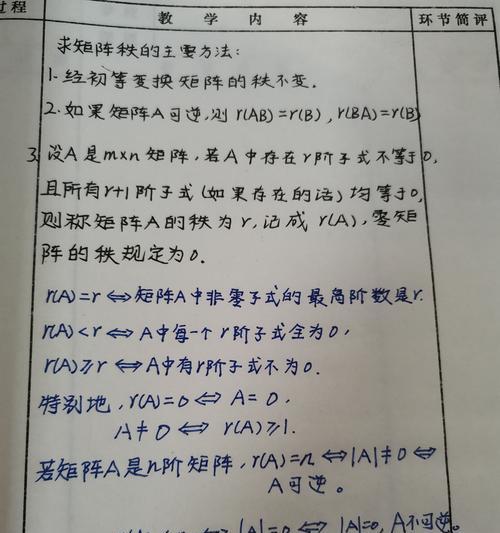 过程 教学内容 环节简评
求矩阵秩的主要方法:
1.经初等变换矩阵的秩不变.
2.如果矩阵A可逆,则 r(AB)=r(B), r(BA)=r(B)
3.设A是m×n矩阵,若A中存在r阶子式不等于0,
且所有r+1阶子式(如果存在的话)均等于0,
则称矩阵A的秩为r,记成 r(A),零矩
阵的秩规定为0.
r(A)=r⇔矩阵A中非零子式的最高阶数是r.
r(A)<r⇔A中每一个r阶子式全为0,
r(A)≥r⇔A中有r阶子式不为0.
特别地,r(A)=0⇔A=0,
A≠0⇔r(A)≥1.
若矩阵A是n阶矩阵,r(A)=n⇔|A|≠0⇔
A可逆。
⇔|A|=0⇔|A|=0,A不可逆。